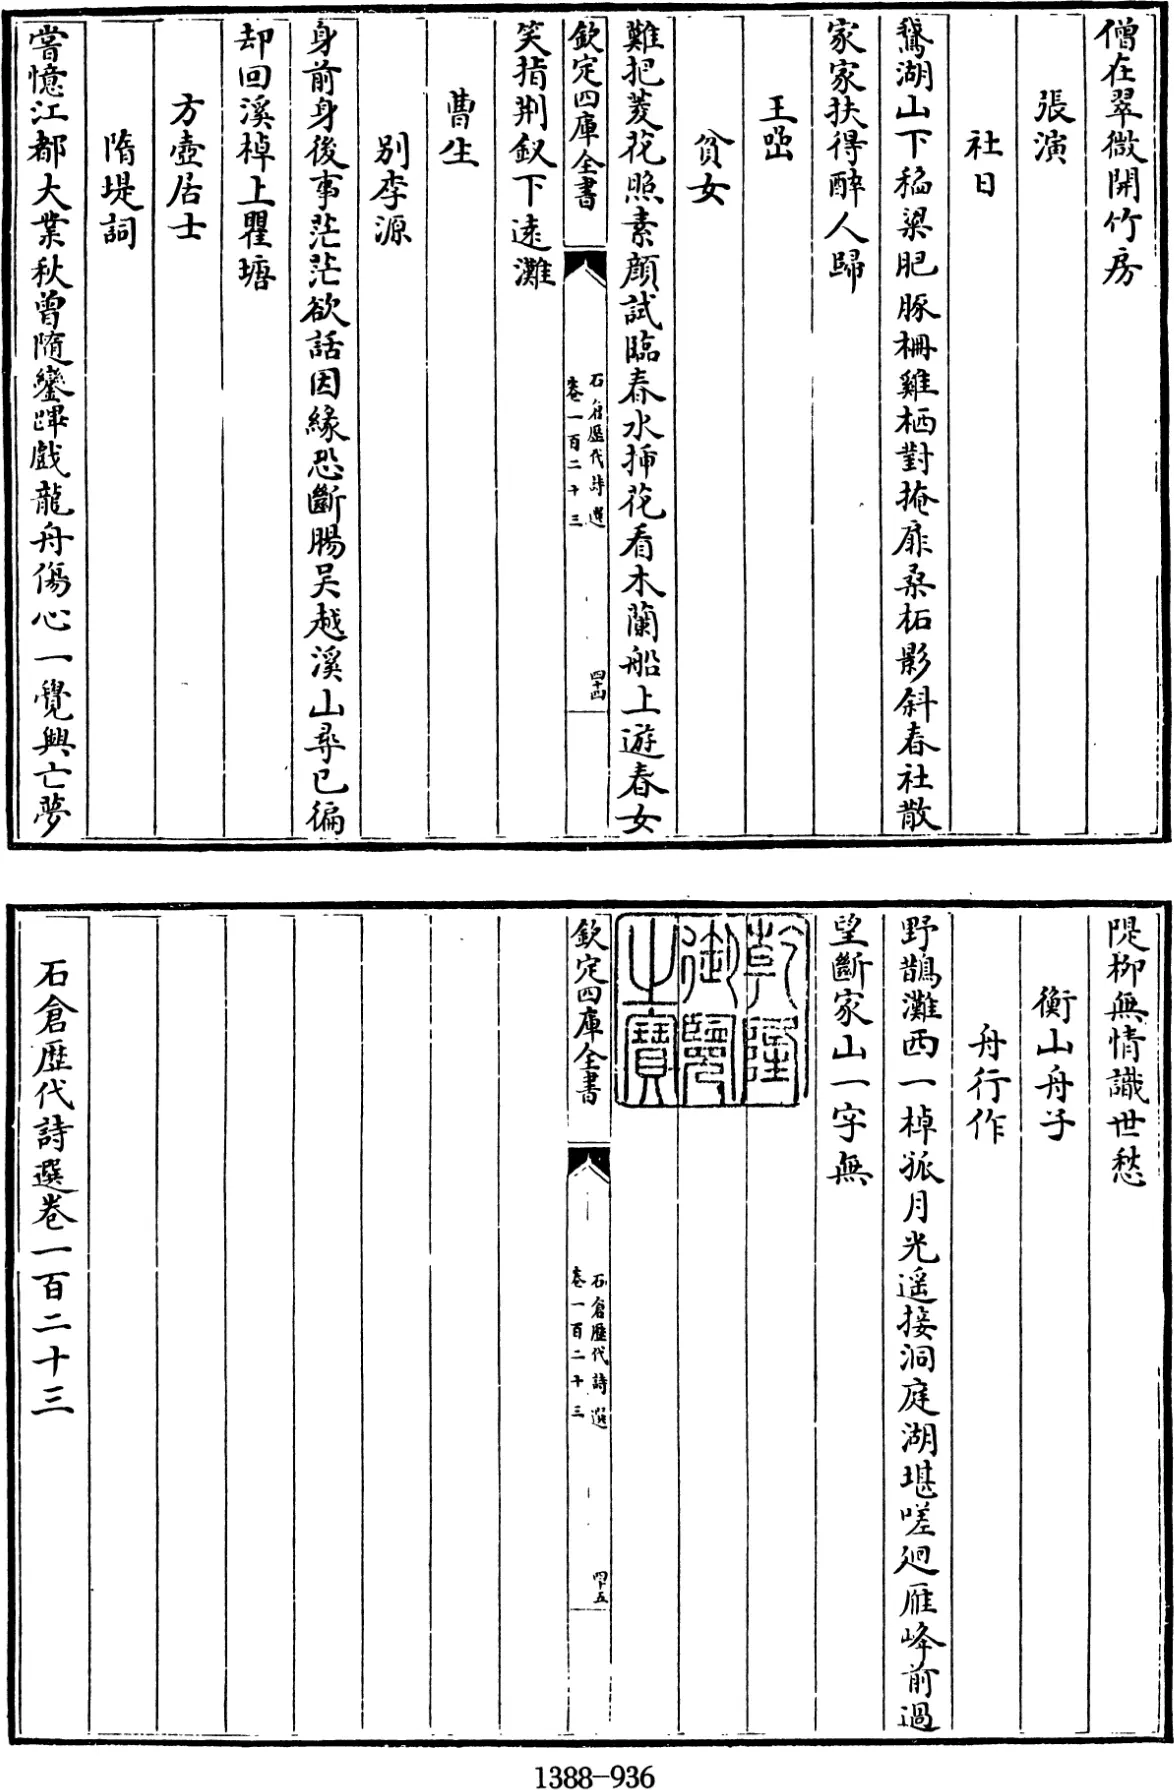 僧在翠微開竹房
張演
社日
鵞湖山下稻粱肥豚柵雞栖對掩扉桑柘影斜春社散
家家扶得醉人歸
王嵒
貧女
難把菱花照素顔試臨春水揷花看木蘭船上遊春女
欽定四庫全書
石倉歷代詩選
卷一百二十三
四十四
笑指荆釵下逺灘
曹生
别李源
身前身後事茫茫欲話因緣恐斷腸吴越溪山尋已徧
却回溪棹上瞿塘
方壺居士
隋堤詞
嘗憶江都大業秋曾隨鑾蹕戯龍舟傷心一覺興亡夢
隄柳無情識世愁
衡山舟子
舟行作
野鵲灘西一棹孤月光遥接洞庭湖堪嗟廻雁峰前過
望斷家山一字無
乾隆
御覽
之寶
欽定四庫全書
石倉歷代詩選
卷一百二十三
四十五
石倉歷代詩選卷一百二十三
1388-936